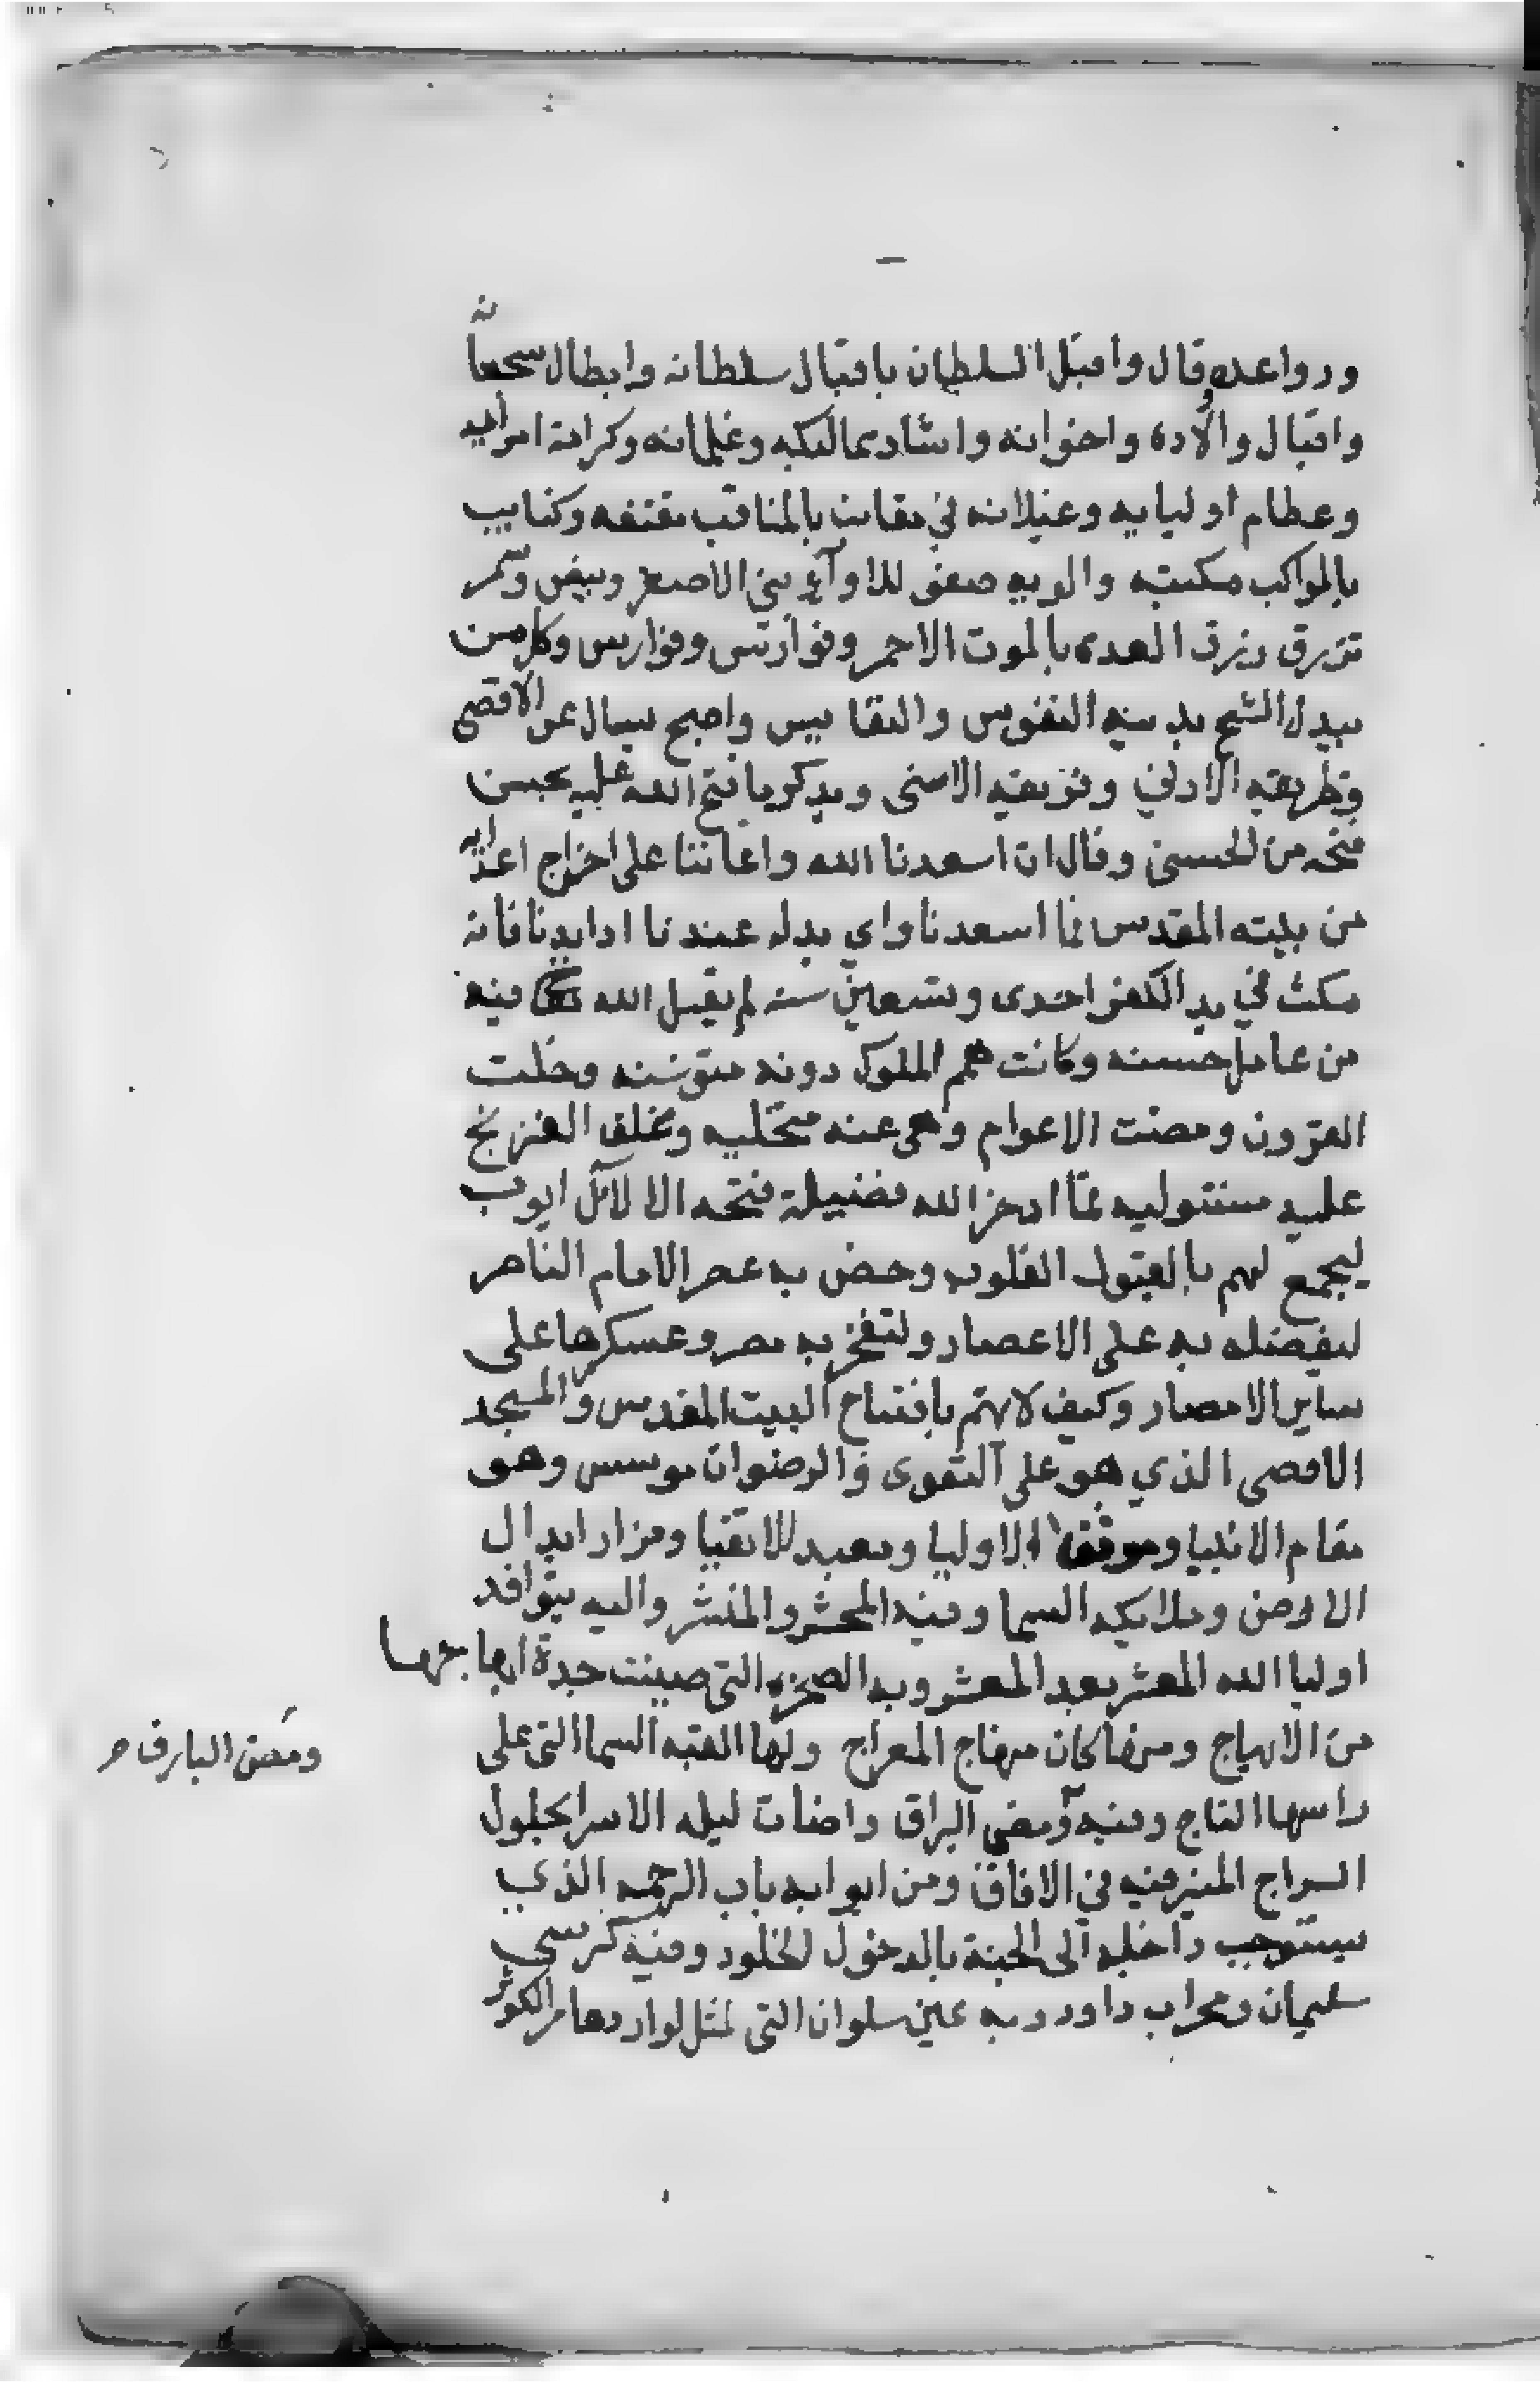 ورواعده وقال واقبل السلطان باقبال سلطانه وابطال شجعانه
واقبال والاده واخوانه واشاد مماليكه وغلمانه وكرامة امرايه
وعظام اوليايه في مقانب بالمناقب مقتفه وكتايب
بالمواكب مكتبه والويه صفر للاوآء بني الاصفر وبيض وسمر
تزرق زرق العدى بالموت الاحمر وفوارس وفوارس وكل من
يبدل الشح بدينه النفوس والنفايس واصبح يسال عن الاقصى
وطريقه الادني وفريقه الاسنى ويدكر ما فتح الله عليه بحسن
فتحه من الحسنى وقال ان اسعدنا الله واعاننا على اخراج اعدايه
من بيته المقدس فما اسعدنا واي يد له عندنا ادا ايدنا فانه
مكث في يد الكفر احدى وتسعين سنه لم يقبل الله فيه
من عامل حسنه وكانت همم الملوك دونه متوسنه وخلت
القرون ومضت الاعوام وهى عنه متخليه وتخلف الفرنج
عليه مستوليه فما ادخر الله فضيلة فتحه الا لآل ايوب
ليجمع لهم بالقبول القلوب وخص به عصر الامام الناصر
ليفضله به على الاعصار ولتفخر به مصر وعسكرها على
ساير الامصار وكيف لا يهتم بافتتاح البيت المقدس والمسجد
الاقصى الذي هو على التقوى والرضوان موسس وهو
مقام الانبيا وموقف الاوليا ومعبد للاتقيا ومزار ابدال
الارض وملايكه السما وفيه المحشر والمنشر واليه يتوافد
اوليا الله المعشر بعد المعشر وبه الصخره التى صينت جدة ابهاجها
من الانهاج ومنها كان منهاج المعراج ولها القبه السما التى على
راسها التاج وفيه ومضى البراق واضات ليله الاسرا بحلول
السراج المنير فيه في الافاق ومن ابوابه باب الرحمه الذي
يستوجب داخله الى الجنة بالدخول الخلود وفيه كرسي
سليمان ومحراب داود وبه عين سلوان التى تمثل لواردها من الكوثر
ومض البارق